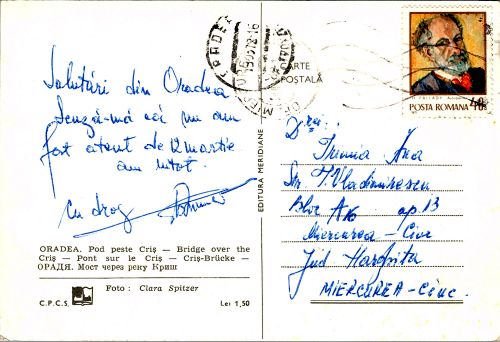 Salutări din Oradea
Scuză-mă că nu am
fost atent de 12 martie
am uitat.
Cu drag
ORADEA. Pod peste Criș — Bridge over the
Criș — Pont sur le Criș — Criș-Brücke —
ОРАДЯ. Мост через реку Криш
Foto : Clara Spitzer
C.P.C.S.
Lei 1,50
EDITURA MERIDIANE
ORADEA
CARTE
POȘTALĂ
POSTA ROMANA 40
D-rei
Ana
Str. T. Vladimirescu
Bloc A16 ap. 13
Miercurea - Ciuc
Jud Harghita
MIERCUREA - Ciuc.